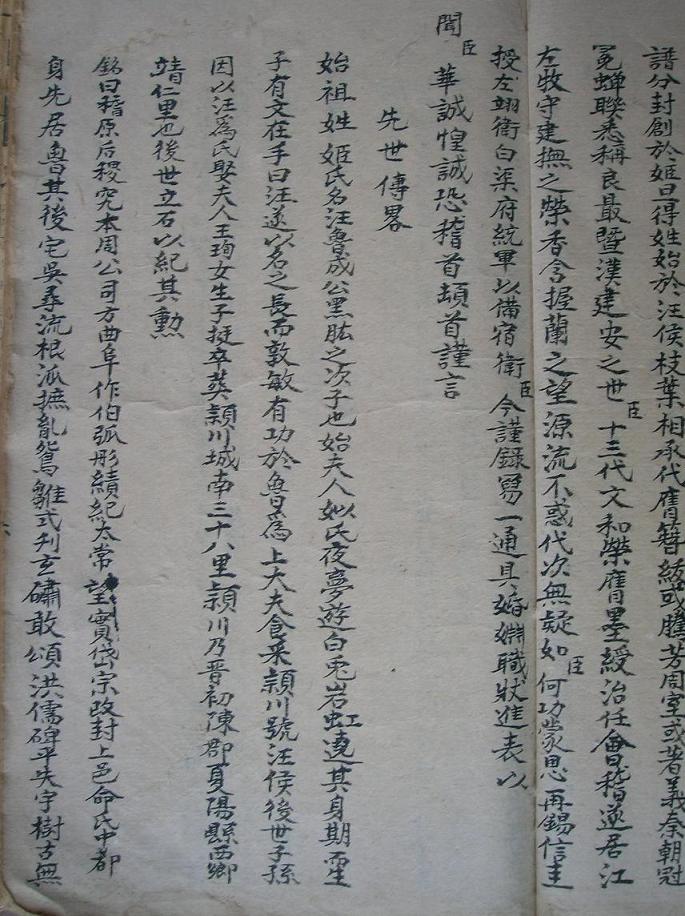 譜分封創於姬旦得姓始於汪侯枝葉相承代膺簪紱或騰芳周室或著義秦朝冠
冕蟬聯悉稱良最暨漢建安之世臣十三代文和榮膺墨綬治任會稽遂居江
左牧守建撫之榮香含握蘭之望源流不惑代次無疑如臣何功蒙恩再錫信圭
授左翊衛白渠府統軍以備宿衛臣今謹錄寫一通具婚姻職狀進表以
聞臣華誠惶誠恐稽首頓首謹言
先世傳畧
始祖姓姬氏名汪魯成公黑肱之次子也始夫人姒氏夜夢遊白兎岩虹遶其身期而生
子有文在手曰汪遂以名之長而敦敏有功於魯為上大夫食采潁川號汪侯後世子孫
因以汪為氏娶夫人王珣女生子挺卒葬潁川城南三十八里潁川乃晋初陳郡夏陽縣西鄉
靖仁里也後世立石以紀其勲
銘曰稽原后稷究本周公司方曲阜作伯弧彤績紀太常望實岱宗改封上邑命氏中都
身先居魯其後宅吳尋流根派摭亂鴛雛式刋玄礀敢頌洪儒碑平失字樹古無